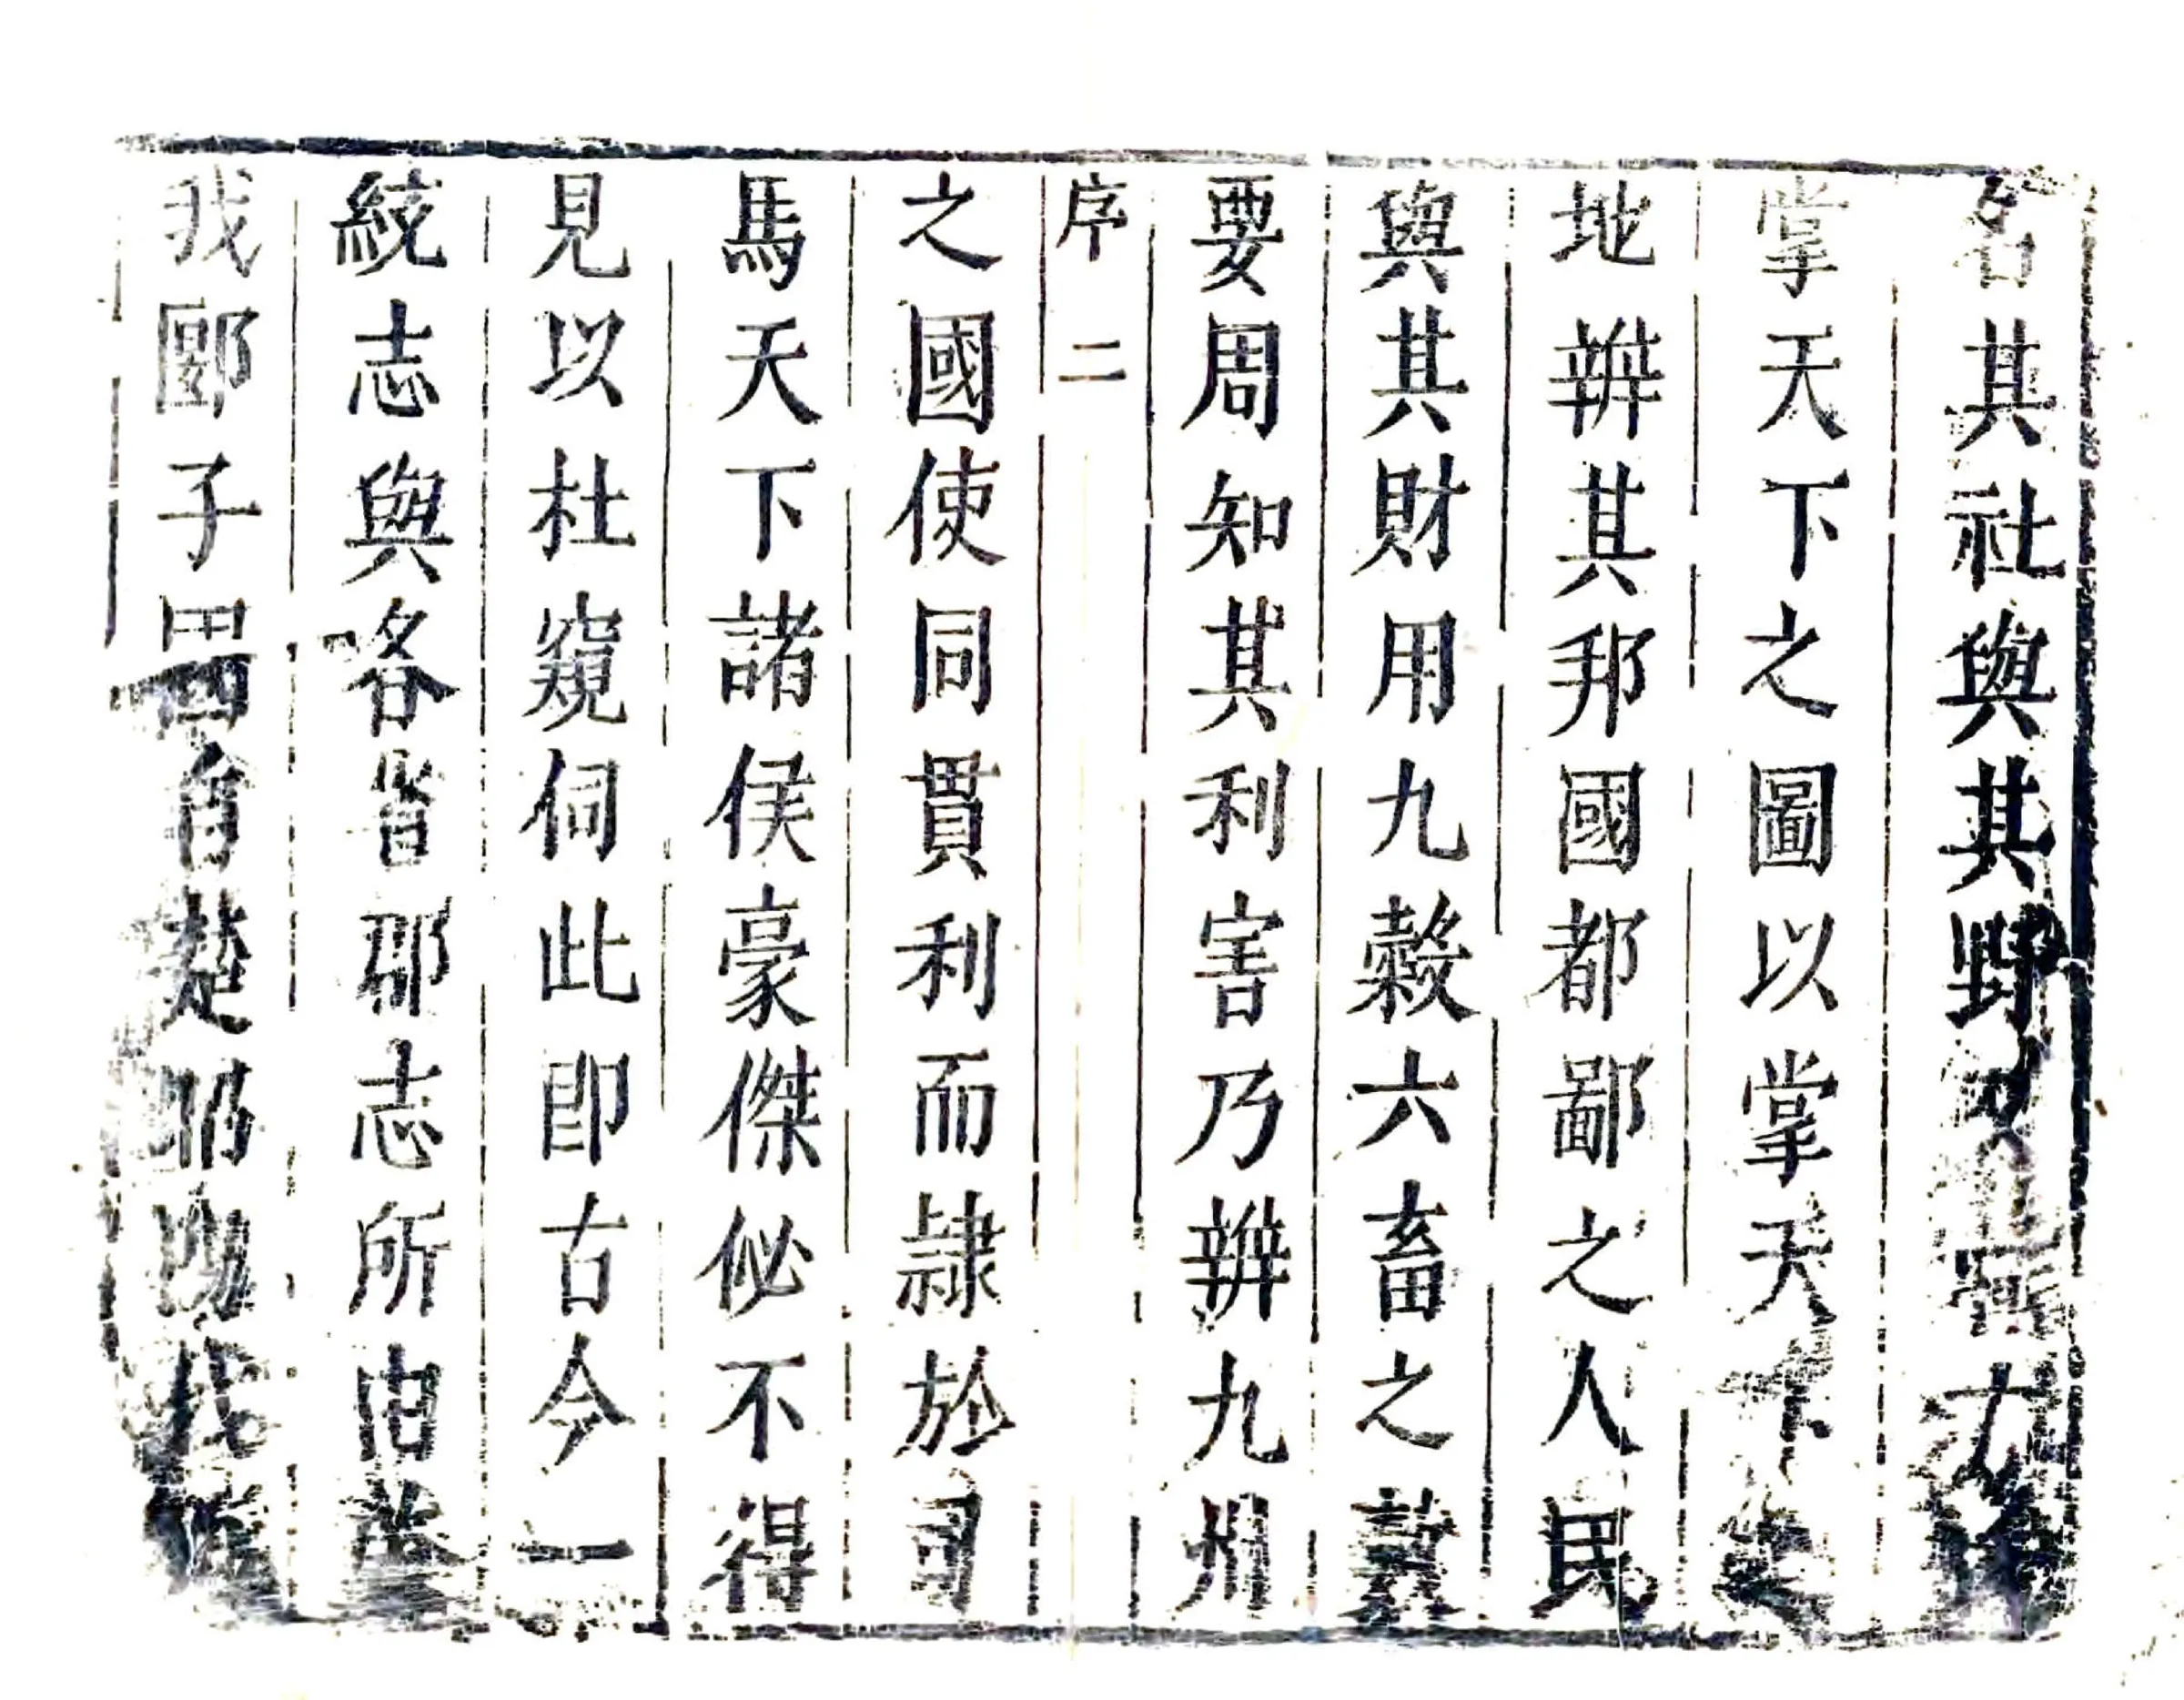 名其社與其野又
掌天下之圖以掌天下之
地辨其邦國都鄙之人民
與其財用九穀六畜之數
要周知其利害乃辨九州
序 二
之國使同貫利而隷於司
馬天下諸侯豪傑佖不得
見以杜窺伺此即古今一
統志與各省郡志所由
我郾子國自楚昭陽伐